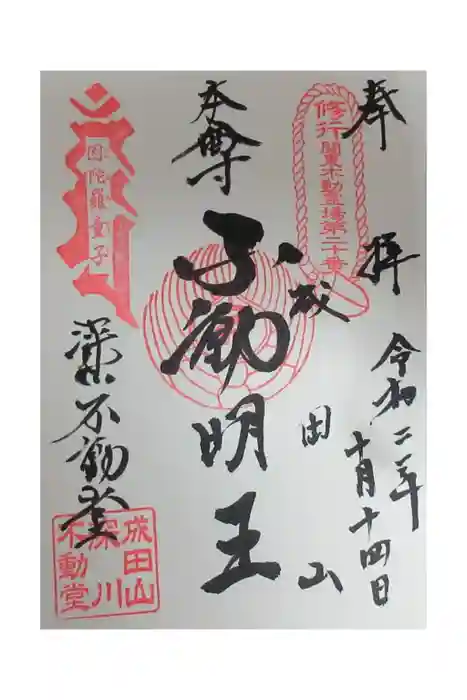 奉拝
令和二年
十月十四日
修行関東不動霊場第二十番
成田山
本尊
不動明王
因陀羅童子
深川不動堂
成田山
深川
不動堂